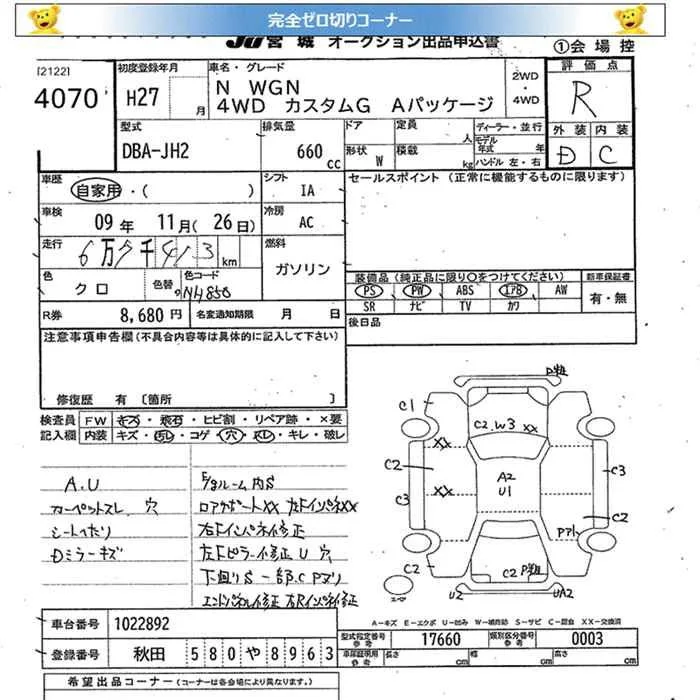 完全ゼロ切りコーナー
JU宮城 オークション出品申込書
①会場控
[2122]
4070
初度登録年月
H27 月
車名・グレード
N WGN
4WD カスタムG Aパッケージ
2WD
・
4WD
評価点
R
外装 内装
D C
型式
DBA-JH2
排気量
660 cc
ドア
形状 W
定員 人
積載 kg
ディーラー・並行
モデル年式 年
ハンドル 左・右
車歴
自家用・( )
シフト
IA
セールスポイント (正常に機能するものに限ります)
車検
09 年 11 月( 26 日)
冷房
AC
走行
6万9千413 km
燃料
ガソリン
色
クロ
色替
色コード
NH850
装備品(純正品に限り○をつけてください)
PS PW ABS エアB AW
SR ナビ TV カワ
新車保証書
有・無
R券 8,680 円
名変通知期限 月 日
後日品
注意事項申告欄(不具合内容等は具体的に記入して下さい)
修復歴 有 〔箇所 〕
検査員記入欄
FW キズ・飛石・ヒビ割・リペア跡・×要
内装 キズ・汚レ・コゲ・穴・スレ・キレ・破レ
A.U
カーペットスレ、穴
シートヘたり
Dミラーキズ
右Fインパネ修正
C1
C2
C3
C2
C2.W3 XX
XX
XX
A2
U1
C3
C2
C2
U2
UA2
A-キズ E-エクボ U-凹み W-補修跡 S-サビ C-腐食 XX-交換済
車台番号 1022892
登録番号 秋田 580や8963
型式指定番号 参考 17660
類別区分番号 参考 0003
車庫証明用 参考 長さ cm 幅 cm 高さ cm
希望出品コーナー (コーナーは各会場により異なります。)